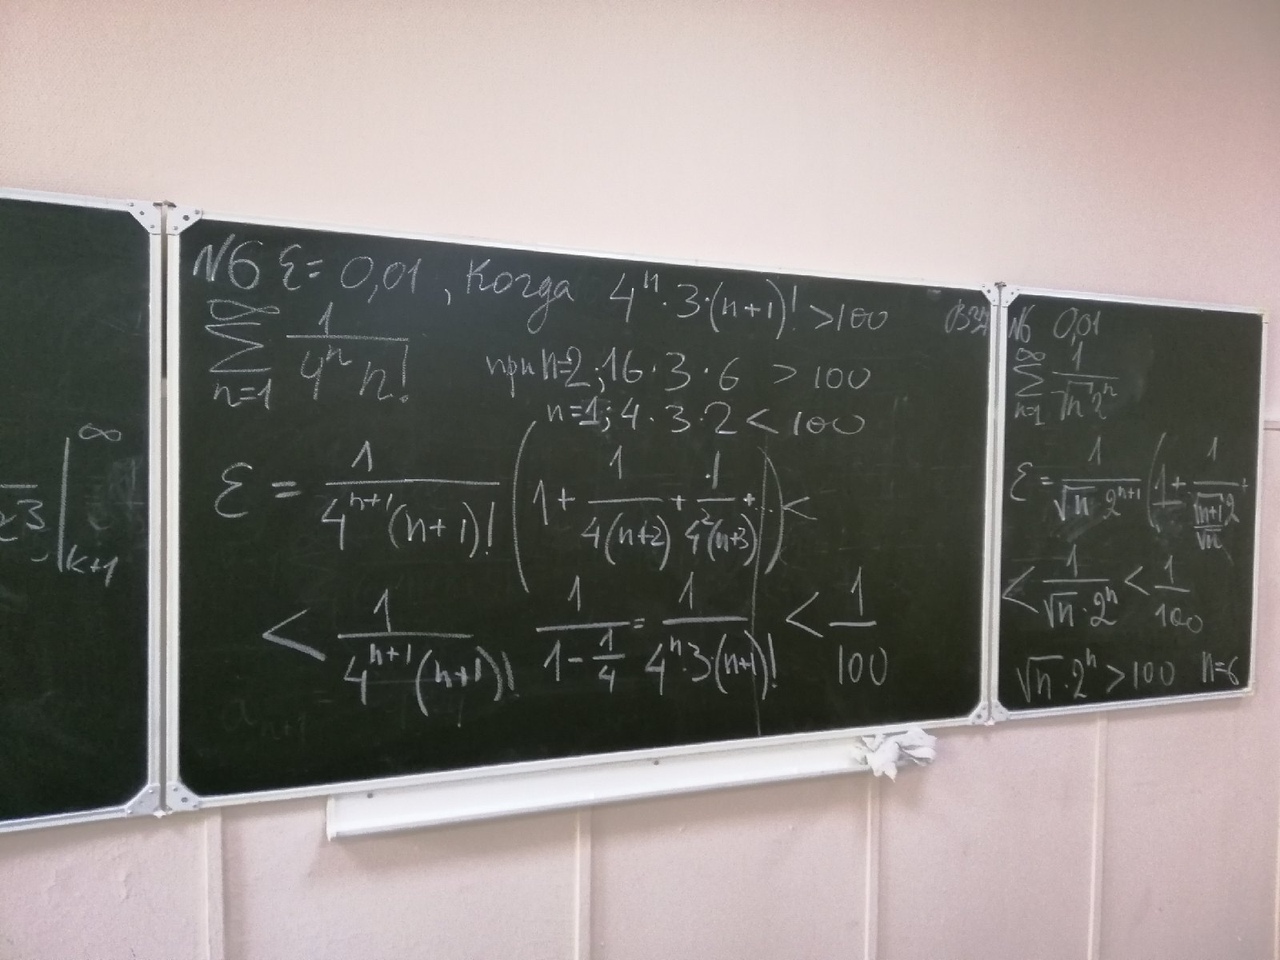 ∞
3
k+1
N6 ε = 0,01 , Когда 4ⁿ · 3 · (n+1)! > 100
∞
∑ 1 / 4ⁿ n!
n=1
при n=2; 16 · 3 · 6 > 100
n=1; 4 · 3 · 2 < 100
ε = 1 / 4ⁿ⁺¹ (n+1)! ( 1 + 1 / 4(n+2) + 1 / 4²(n+3) + ... ) <
< 1 / 4ⁿ⁺¹ (n+1)! 1 / 1 - 1/4 = 1 / 4ⁿ · 3 · (n+1)! < 1 / 100
N6 0,01
∞
∑ 1 / √n 2ⁿ
n=1
ε = 1 / √n 2ⁿ⁺¹ ( 1 + 1 / √n+1 / √n 2 +
< 1 / √n · 2ⁿ < 1 / 100
√n · 2ⁿ > 100 n=6